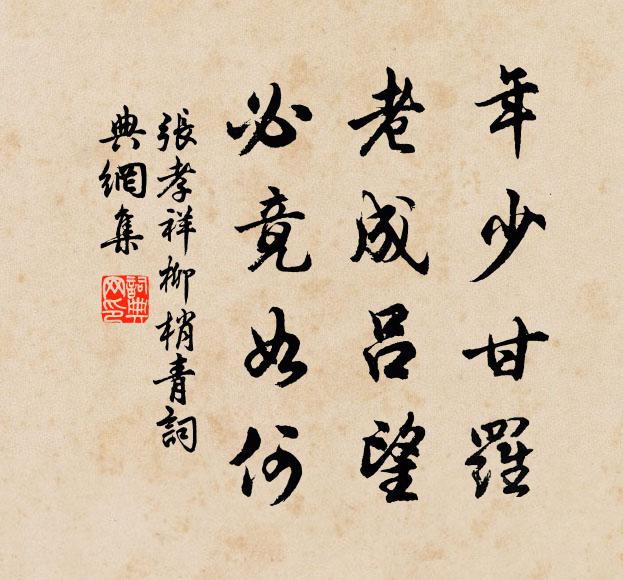 年少甘羅
老成呂望
必竟如何
張孝祥柳梢青詞
典網集
詞典網印